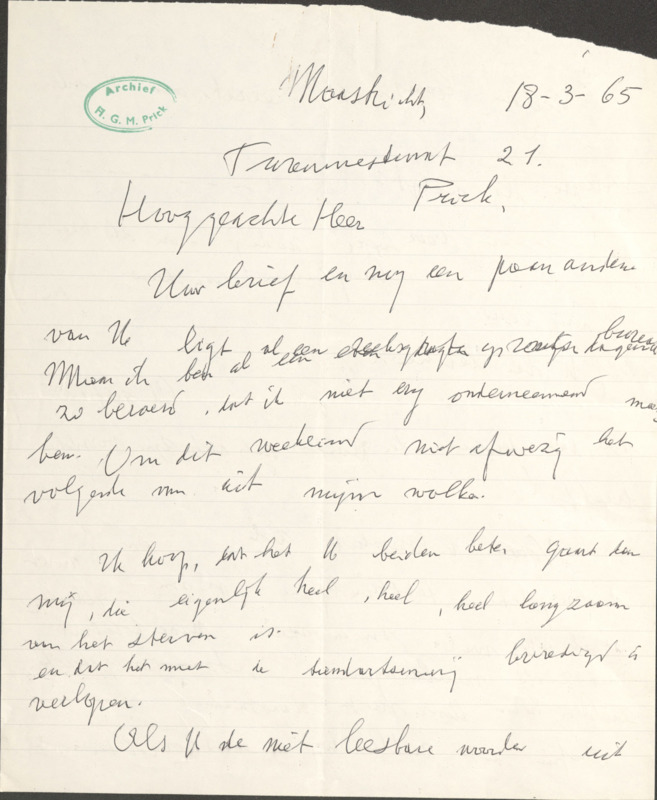 Archief
H. G. M. Prick
Maastricht, 18-3-65
Turennestraat 21.
Hooggeachte Heer Prick,
Uw brief en nog een paar andere
van U ligt al een op bureau
Maar ik ben al een
zo beroerd, dat ik niet erg ondernemend
ben. Om dit weekeind niet afwezig het
volgende uit mijn wolke.
Ik hoop, dat het U beiden beter gaat dan
mij, die eigenlijk heel, heel, heel langzaam
aan het sterven is.
en dat het met de bevredigd is
verlopen.
Als U de niet leesbare woorden uit